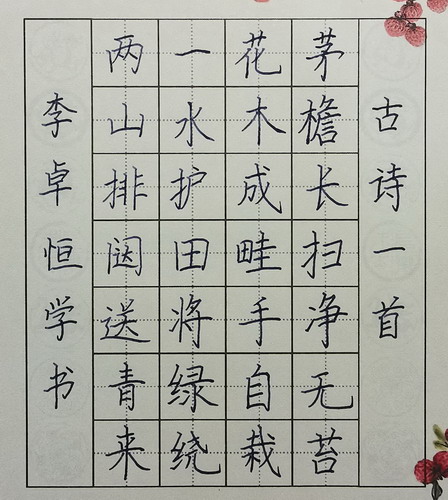 古诗一首
茅檐长扫净无苔
花木成畦手自栽
一水护田将绿绕
两山排闼送青来
李卓恒学书